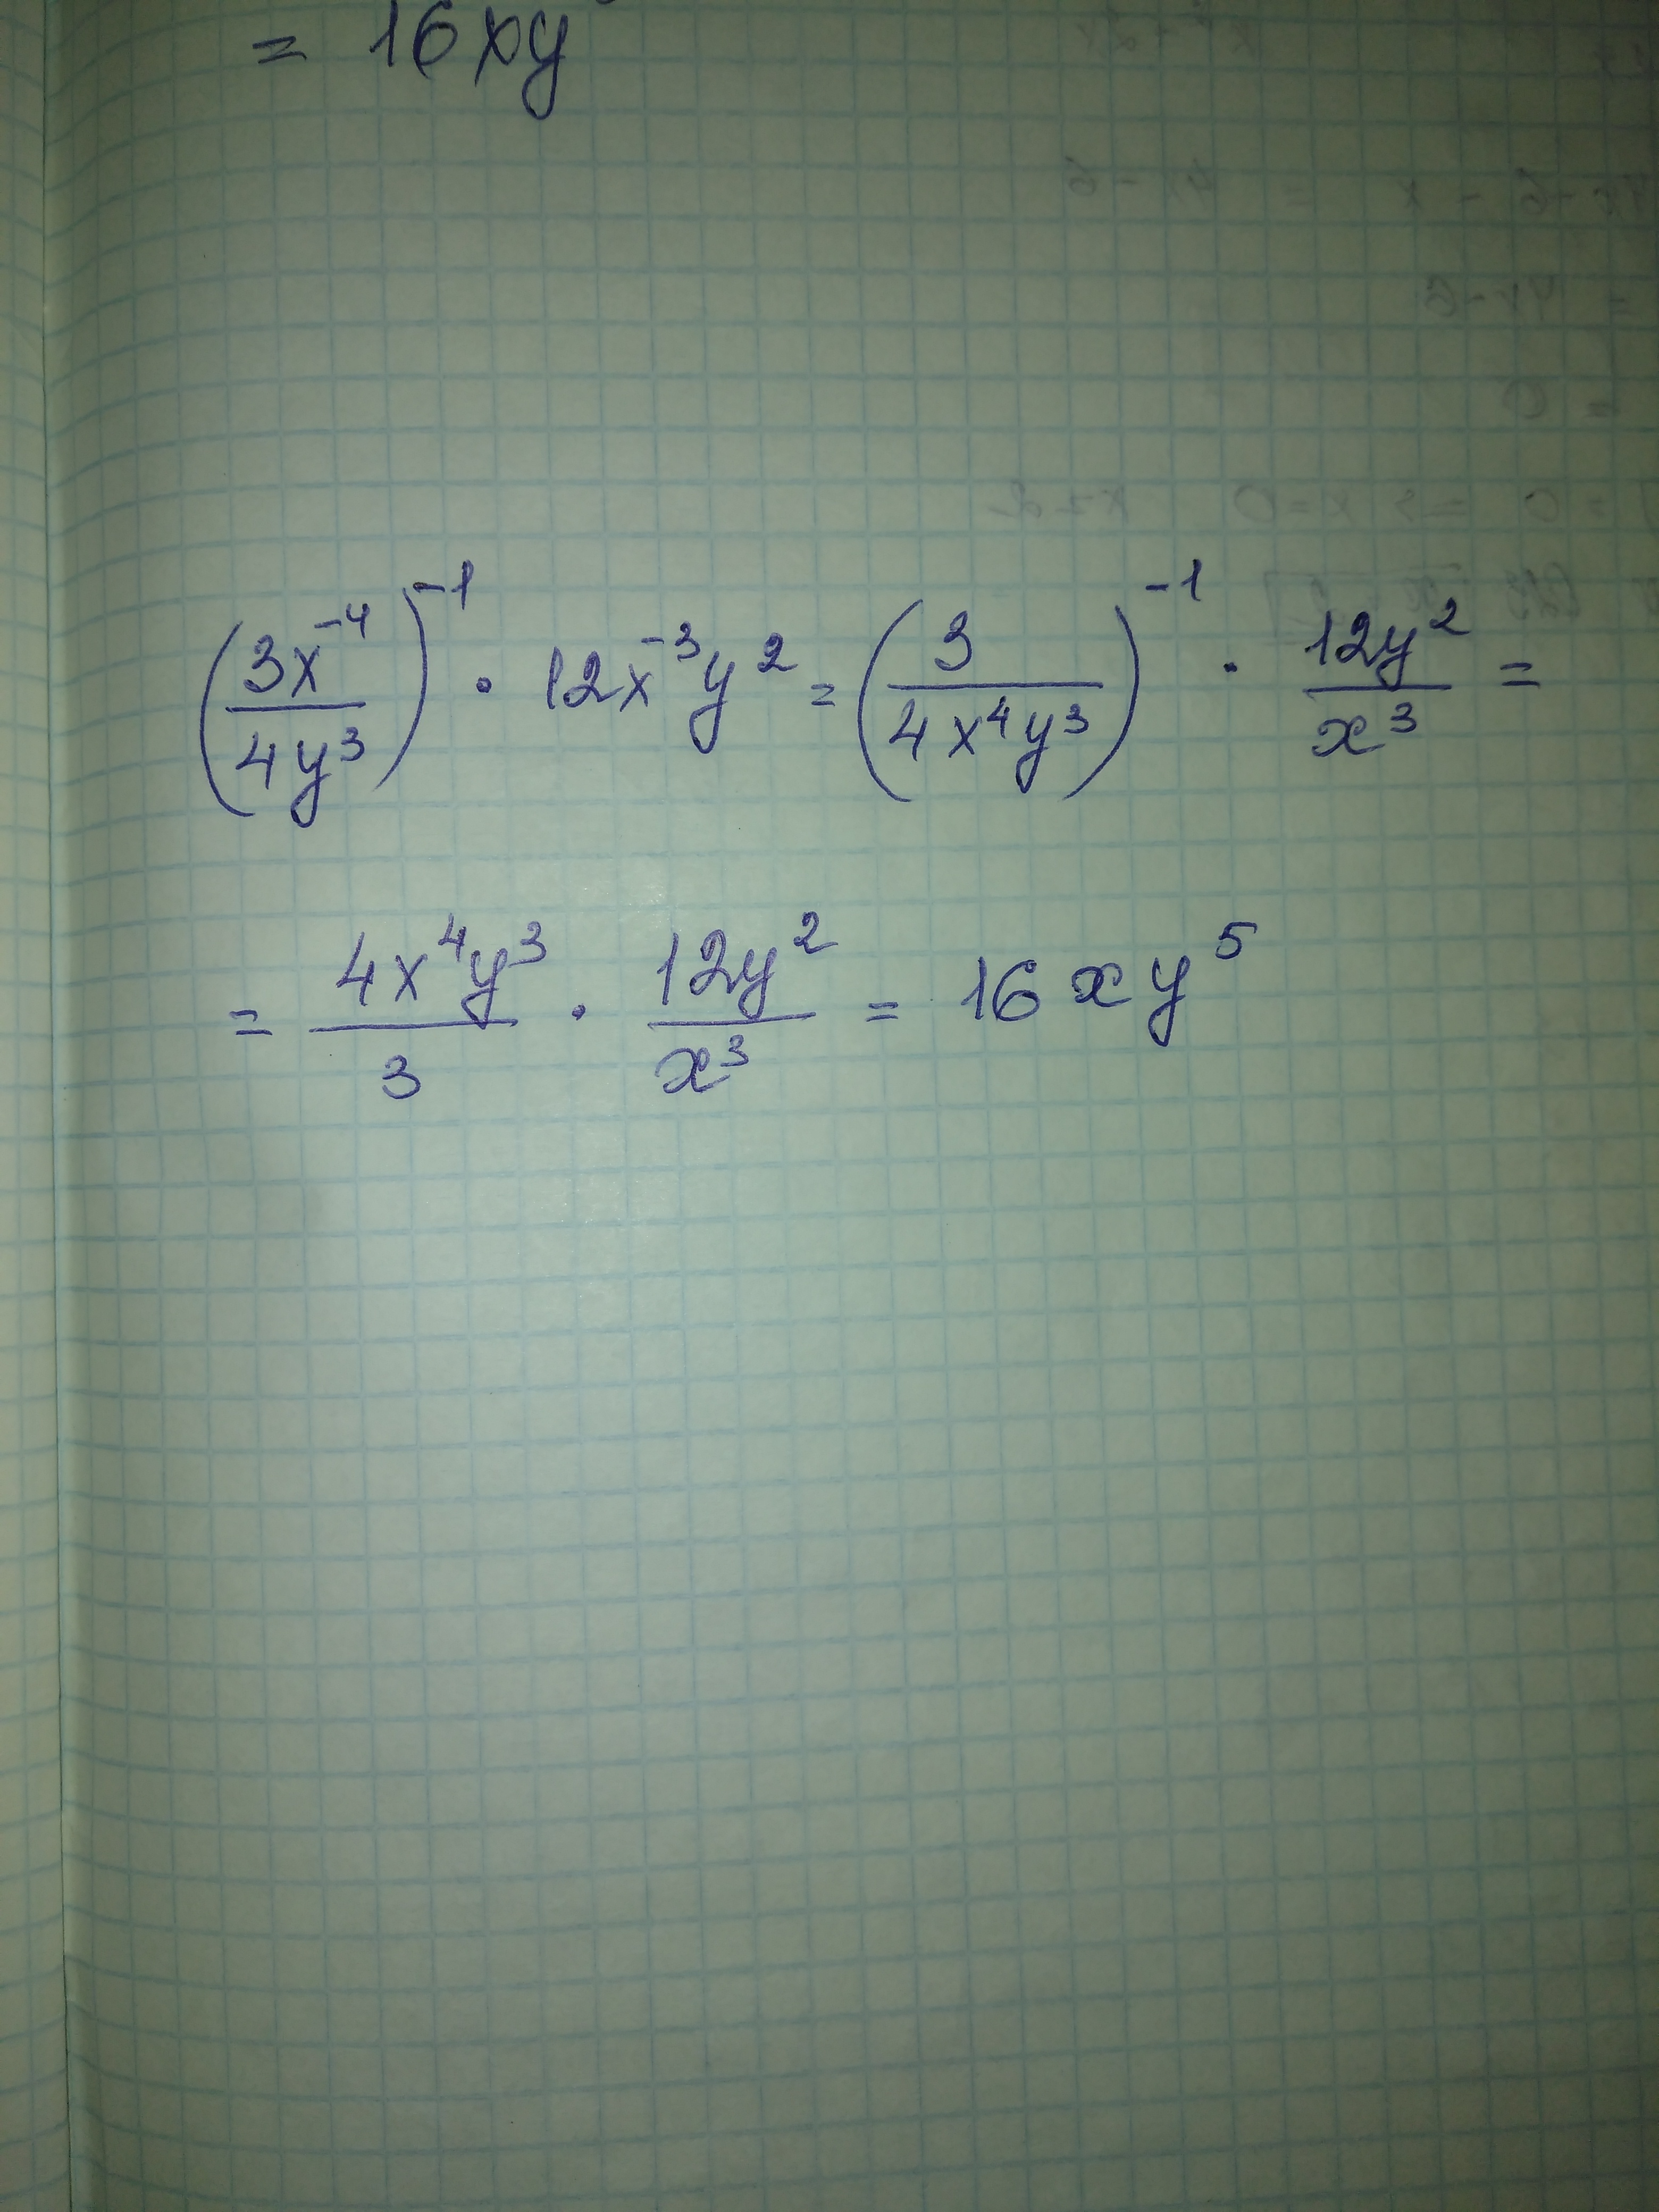 = 16xy
(3x⁻⁴/4y³)⁻¹ · 12x⁻³y² = (3/4x⁴y³)⁻¹ · 12y²/x³ =
= 4x⁴y³/3 · 12y²/x³ = 16xy⁵